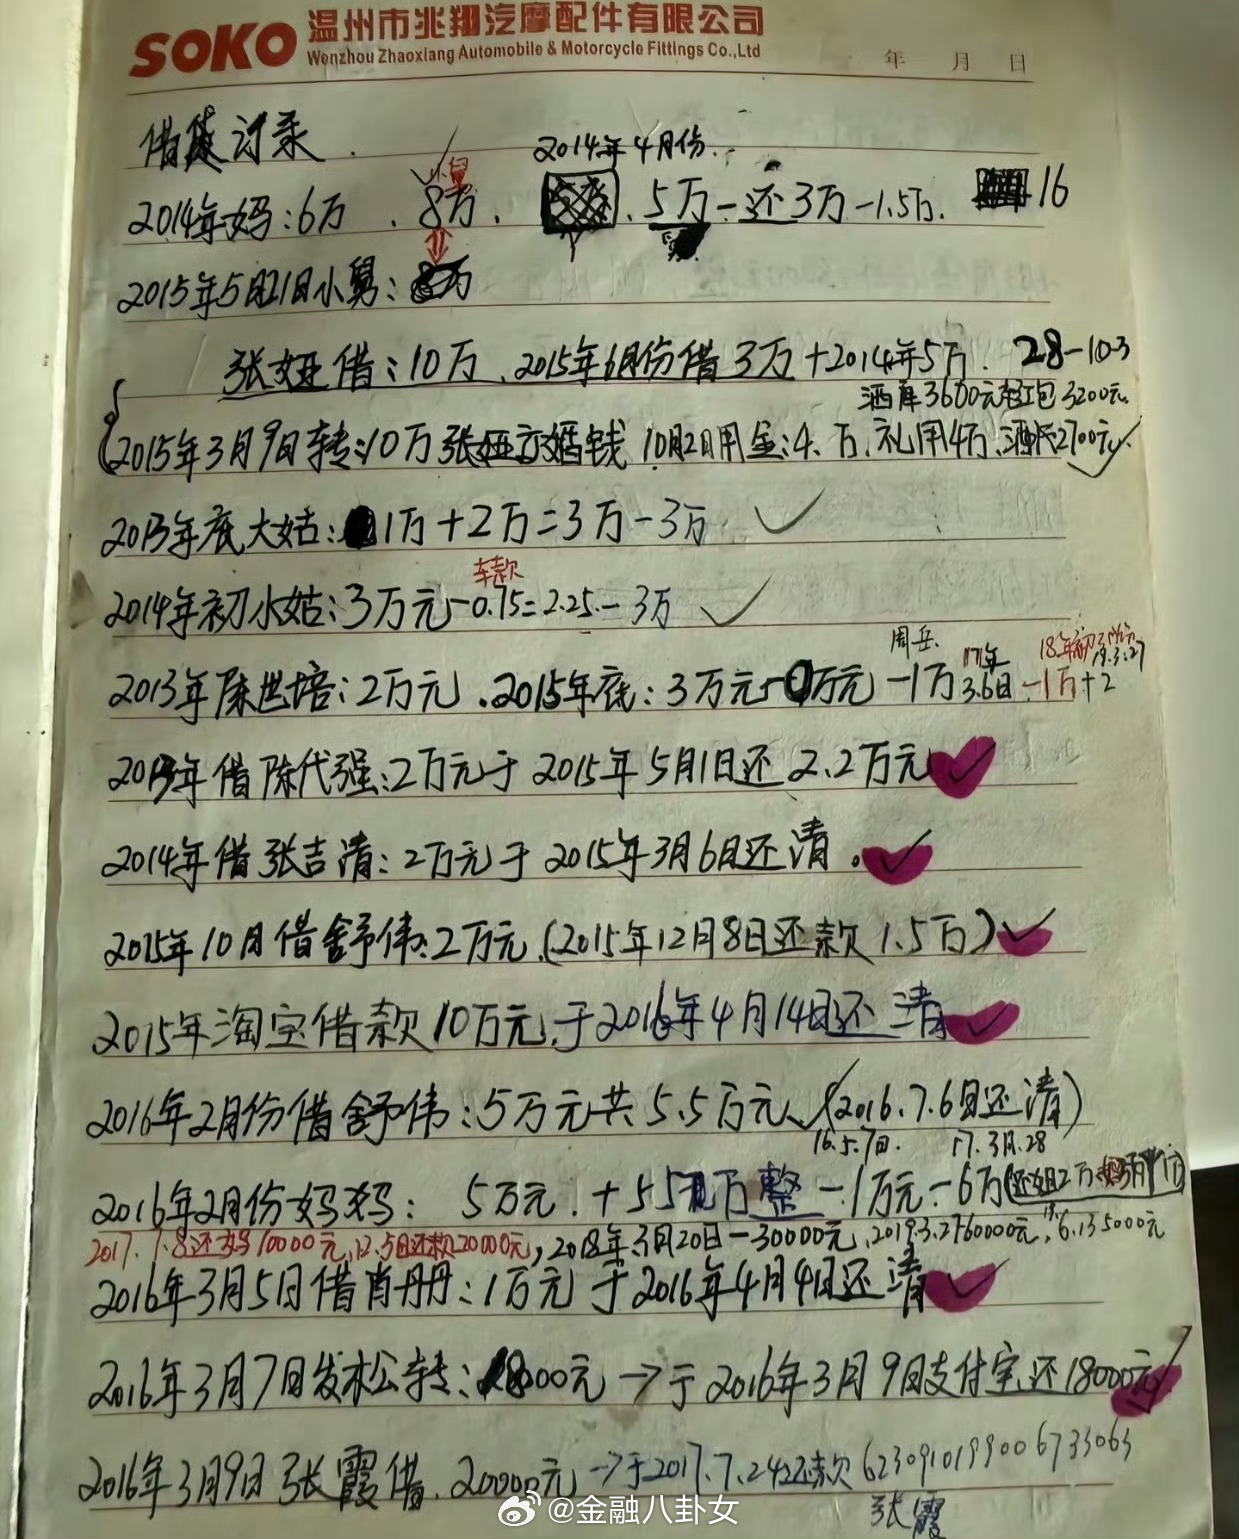 SOKO 温州市兆翔汽摩配件有限公司
Wenzhou Zhaoxiang Automobile & Motorcycle Fittings Co.,Ltd
年 月 日
借贷记录
2014年4月份
小舅
2014年妈:6万 . 8万. 5万-还3万-1.5万. 16
2015年5月21日小舅:8万
张娅借:10万.2015年6月份借3万+2014年5万. 28-10-3
酒席3600元红包3200元
2015年3月9日转:10万张娅 婚钱 10月2日用金:4.万.礼用4万. 2700元
2013年底大姑:1万+2万=3万-3万
车款
2014年初小姑:3万元-0.75=2.25-3万
周岳 17年 18年 19.3.27
2013年陈世培:2万元.2015年底:3万元 万元-1万 3.6日-1万+2
2013年借陈代强:2万元于2015年5月1日还2.2万元
2014年借张吉清:2万元于2015年3月6日还清.
2015年10月借舒伟:2万元.(2015年12月8日还款1.5万)
2015年淘宝借款10万元,于2016年4月14日还清
2016年2月份借舒伟:5万元共5.5万元(2016.7.6日还清)
16.5.7日. 17.3月.28
2016年2月份妈妈: 5万元.+5 万整-1万元-6万(还姐2万
2017.7.8还妈10000元,12.5日还款20000元,2018年3月20日-30000元,2019.3.27 60000元, 6.13 5000元
2016年3月5日借肖丹丹:1万元于2016年4月4日还清
2016年3月7日发松转:18000元→于2016年3月9日支付宝还18000元
2016年3月9日张霞借.20000元→于2017.7.24还款 6230910199006733063
张霞
@金融八卦女